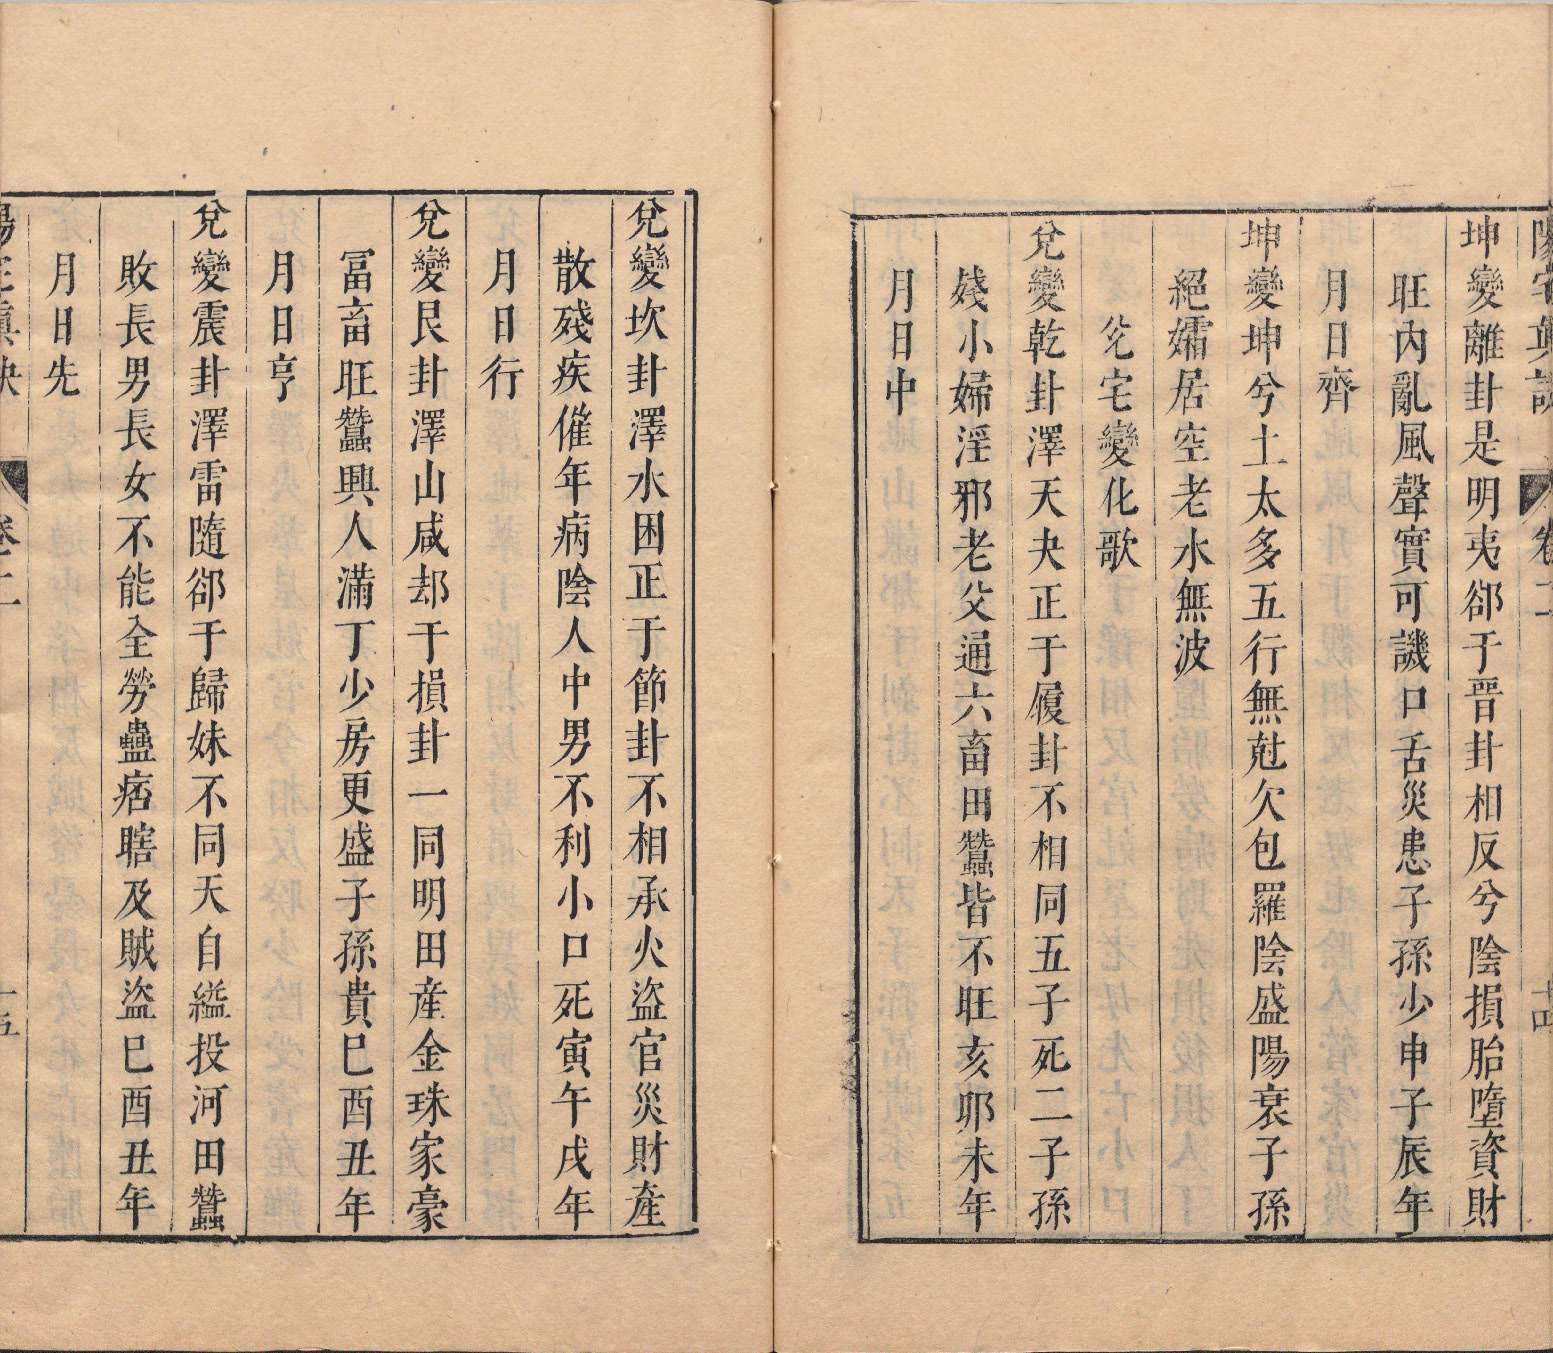 坤變離卦是明夷郤于晋卦相反兮陰損胎墮資財
旺內亂風聲實可譏口舌災患子孫少申子辰年
月日齊
坤變坤兮土太多五行無尅欠包羅陰盛陽衰子孫
絕孀居空老水無波
兊宅變化歌
兊變乾卦澤天夬正于履卦不相同五子死二子孫
殘小婦淫邪老父通六畜田蠶皆不旺亥卯未年
月日中
兊變坎卦澤水困正于節卦不相承火盜官災財產
散殘疾催年病陰人中男不利小口死寅午戌年
月日行
兊變艮卦澤山咸却于損卦一同明田産金珠家豪
冨畜旺蠶興人滿丁少房更盛子孫貴巳酉丑年
月日亨
兊變震卦澤雷隨郤于歸妹不同天自縊投河田蠶
敗長男長女不能全勞蠱痞瞎及賊盜巳酉丑年
月日先
卷二
十五